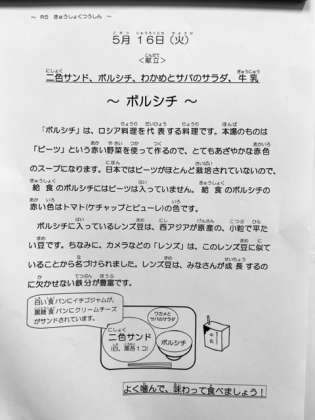 ～ R5 きゅうしょくつうしん ～
5月 16日（火）
＜献立＞
二色サンド、ボルシチ、わかめとサバのサラダ、牛乳
～ ボルシチ ～
「ボルシチ」は、ロシア料理を代表する料理です。本場のものは
「ビーツ」という赤い野菜を使って作るので、とてもあざやかな赤色
のスープになります。日本ではビーツがほとんど栽培されていないので、
給食のボルシチにはビーツは入っていません。給食のボルシチの
赤い色はトマト（ケチャップとピューレ）の色です。
ボルシチに入っているレンズ豆は、西アジアが原産の、小粒で平た
い豆です。ちなみに、カメラなどの「レンズ」は、このレンズ豆に似て
いることから名づけられました。レンズ豆は、みなさんが成長するの
に欠かせない鉄分が豊富です。
白い食パンにイチゴジャムが、
黒糖食パンにクリームチーズ
がサンドされています。
ワカメと
サバのサラダ
二色サンド
（白、黒各1コ）
ボルシチ
よく噛んで、味わって食べましょう！